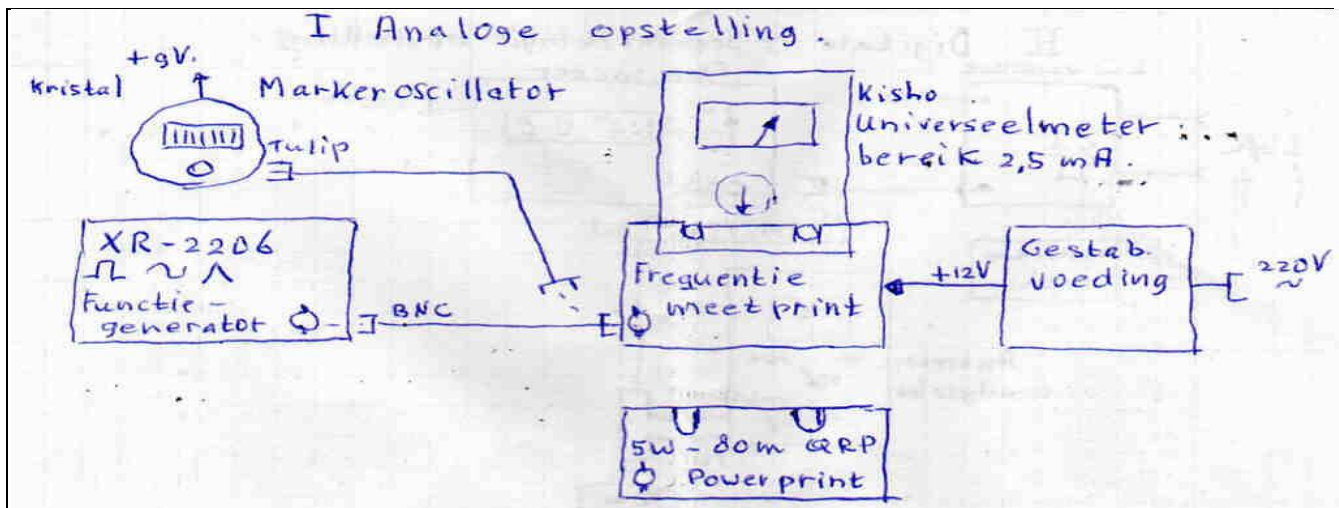 I Analoge opstelling.
+9V.
Kristal
Markeroscillator
Tulip
Kisho
Universeelmeter :..
bereik 2,5 mA.
XR-2206
Functie-
generator
BNC
Frequentie
meetprint
+12V
Gestab.
voeding
220V
~
5W - 80m QRP
Powerprint